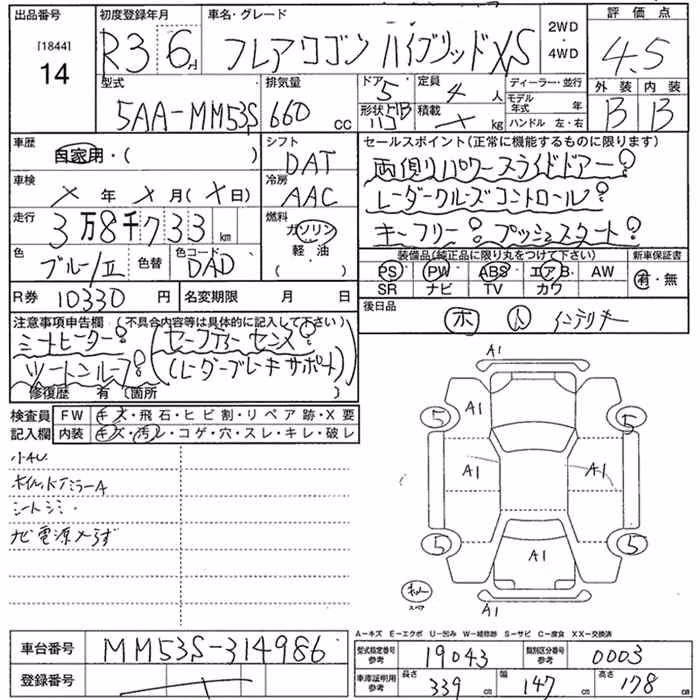 出品番号 初度登録年月 車名・グレード 評価点
[1844]
14
R3 6月 フレアワゴン ハイブリッドXS 2WD・4WD 4.5
型式 排気量 ドア 定員 ディーラー・並行 外装 内装
5AA-MM53S 660cc 5 4人 モデル年式 年 B B
形状 積載 kg ハンドル 左・右
車歴 シフト セールスポイント(正常に機能するものに限ります)
自家用・( ) DAT 両側パワースライドドアー
車検 冷房 レーダークルーズコントロール
× 年 × 月(× 日) AAC
走行 燃料 キーフリー プッシュスタート
3万8千733km ガソリン
軽・油
( )
装備品(純正品に限り丸をつけて下さい) 新車保証書
色 色替 色コード PS PW ABS エアB AW 有・無
ブルー/II DAD SR ナビ TV カワ
R券 10330円 名変期限 月 日 後日品
ホ 人 インテリキー
注意事項申告欄(不具合内容等は具体的に記入して下さい)
シートヒーター (セーフティーセンス
ツートンルーフ (レーダーブレーキサポート)
修復歴 有(箇所 )
検査員 FW キズ・飛石・ヒビ割・リペア跡・X要
記入欄 内装 キズ・汚レ・コゲ・穴・スレ・キレ・破レ
小AU
ホイル、ドアミラーA
シートシミ
ナビ電源入らず
A1
5 A1 5
A1 A1
5 A1 5
スペア
A1
A-キズ E-エクボ U-凹み W-補修跡 S-サビ C-腐食 XX-交換済
車台番号 MM53S-314986
型式指定番号 参考 19043 類別区分番号 参考 0003
登録番号
車庫証明用 参考 長さ 339cm 幅 147cm 高さ 178cm